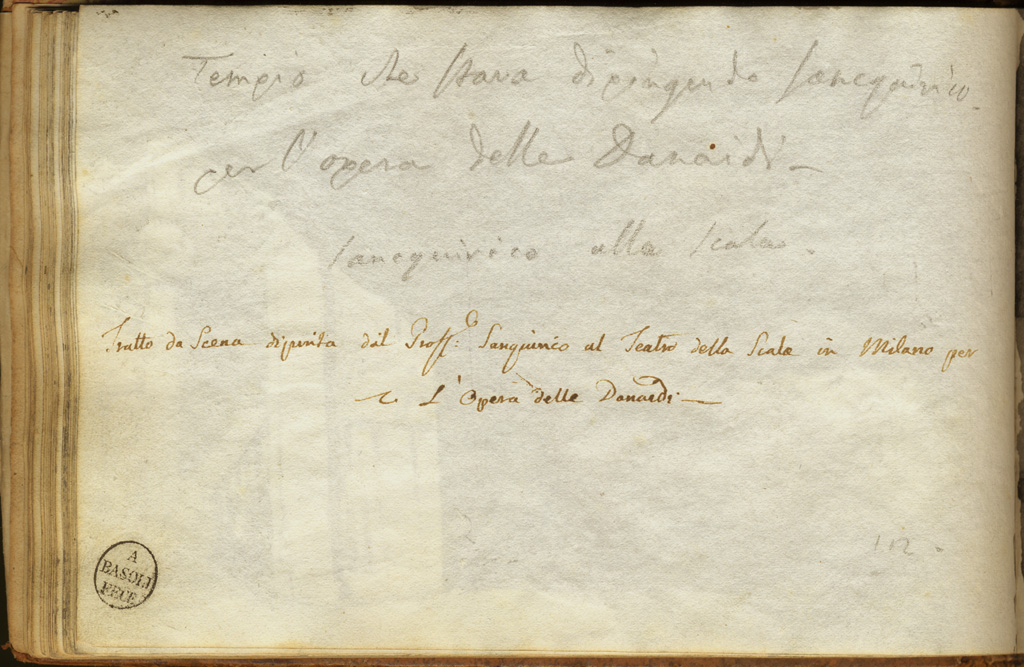 Tempio che stava dipingendo Sancquirico
per l'opera delle Danaidi –
Sancquirico alla Scala.
Tratto da Scena dipinta dal Proff:e Sanquirico al Teatro della Scala in Milano per
L'Opera delle Danaidi —
112.
A
BASOLI
FECE